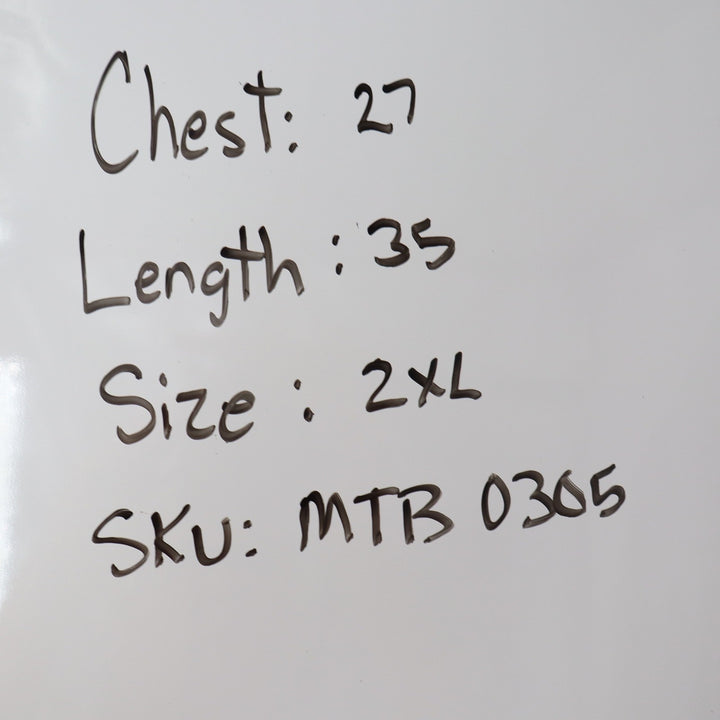 Chest: 27
Length : 35
Size : 2XL
SKU: MTB 0305